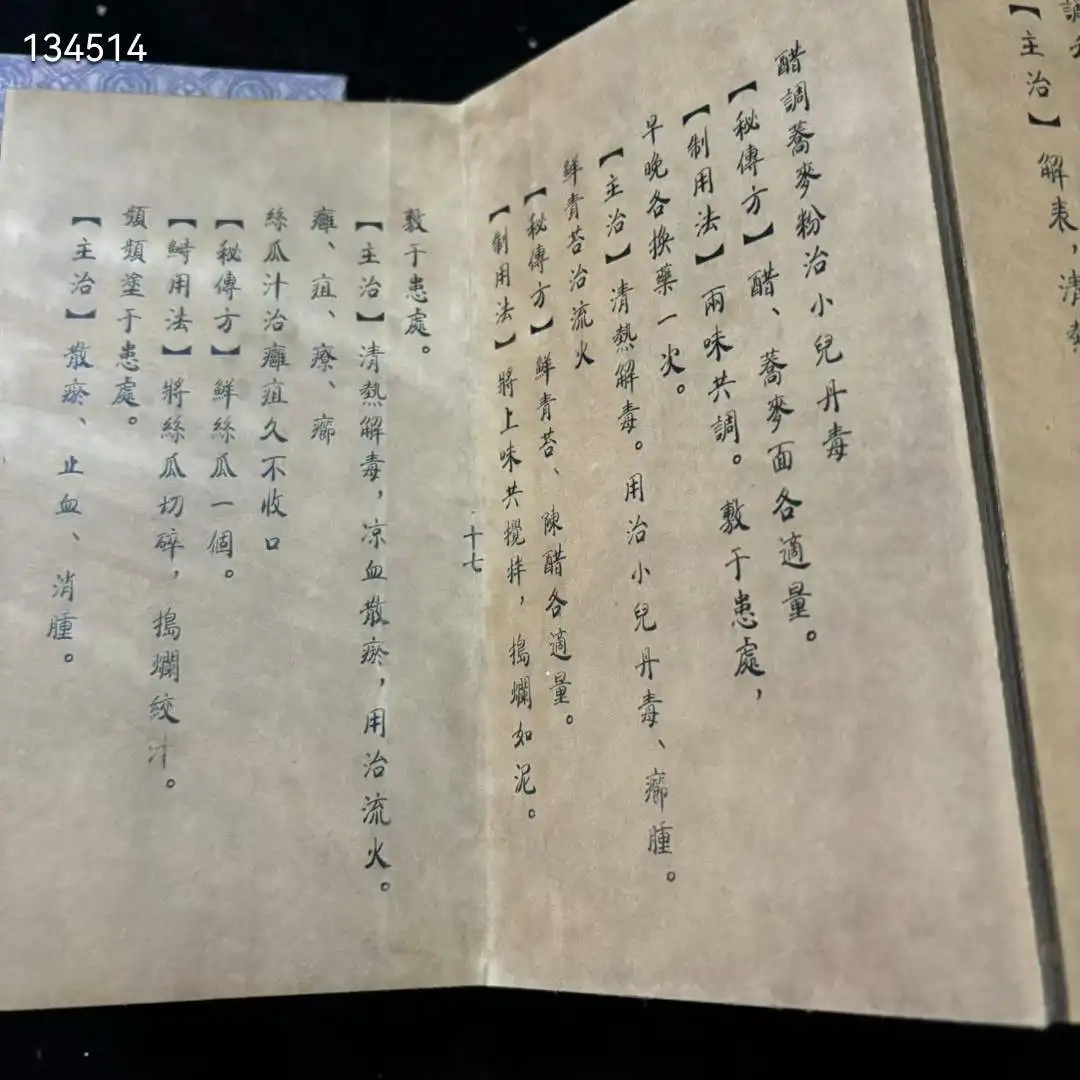 134514
調
【主治】解表，清熱
醋調蕎麥粉治小兒丹毒
【秘傳方】醋、蕎麥面各適量。
【制用法】兩味共調。敷于患處，
早晚各換藥一次。
【主治】清熱解毒。用治小兒丹毒、癤腫。
鮮青苔治流火
【秘傳方】鮮青苔、陳醋各適量。
【制用法】將上味共攪拌，搗爛如泥。
十七
敷于患處。
【主治】清熱解毒，凉血散瘀，用治流火。
癰、疽、療、癤
絲瓜汁治癰疽久不收口
【秘傳方】鮮絲瓜一個。
【制用法】將絲瓜切碎，搗爛絞汁。
頻頻塗于患處。
【主治】散瘀、止血、消腫。